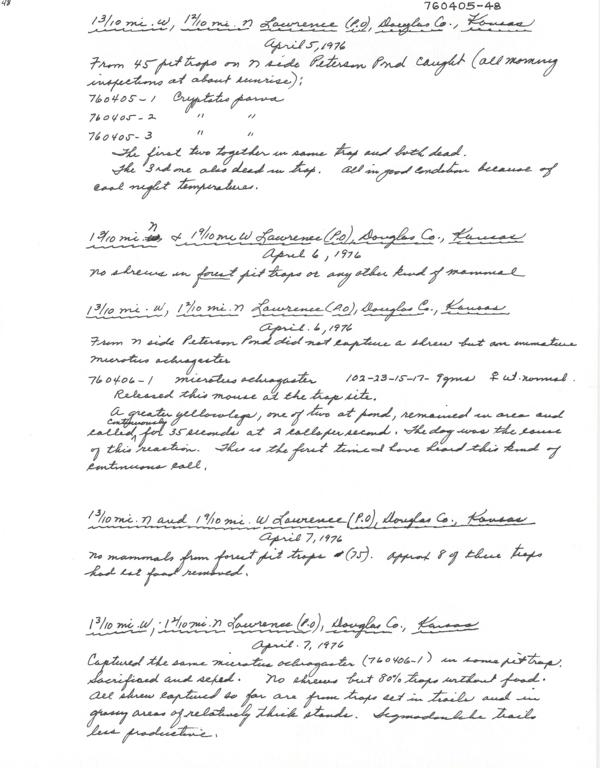 48
760405-48
1 3/10 mi. W, 1 2/10 mi. N Lawrence (P.O), Douglas Co., Kansas
April 5, 1976
From 45 pit traps on N side Peterson Pond caught (all morning
inspections at about sunrise);
760405-1 Cryptotis parva
760405-2 " "
760405-3 " "
The first two together in same trap and both dead.
The 3rd one also dead in trap. All in good condition because of
cool night temperatures.
N
1 3/10 mi. & 1 9/10 mi W Lawrence (P.O), Douglas Co., Kansas
April 6, 1976
No shrews in forest pit traps or any other kind of mammal
1 3/10 mi. W, 1 2/10 mi. N Lawrence (P.O), Douglas Co., Kansas
April. 6, 1976
From N side Peterson Pond did not capture a shrew but an immature
Microtus ochrogaster
760406-1 Microtus ochrogaster 102-23-15-17- 9gms ♀ wt. normal.
Released this mouse at the trap site.
A greater yellowlegs, one of two at pond, remained in area and
continuously
called for 35 seconds at 2 calls per second. The dog was the cause
of this reaction. This is the first time I have heard this kind of
continuous call.
1 3/10 mi. N and 1 9/10 mi. W Lawrence (P.O), Douglas Co., Kansas
April 7, 1976
No mammals from forest pit traps (75). Approx 8 of these traps
had cat food removed.
1 3/10 mi. W, 1 2/10 mi. N Lawrence (P.O), Douglas Co., Kansas
April. 7, 1976
Captured the same Microtus ochrogaster (760406-1) in same pit trap.
Sacrificed and sexed. No shrews but 80% traps without food.
All shrew captured so far are from traps set in trails and in
grassy areas of relatively thick stands. trails
less productive.